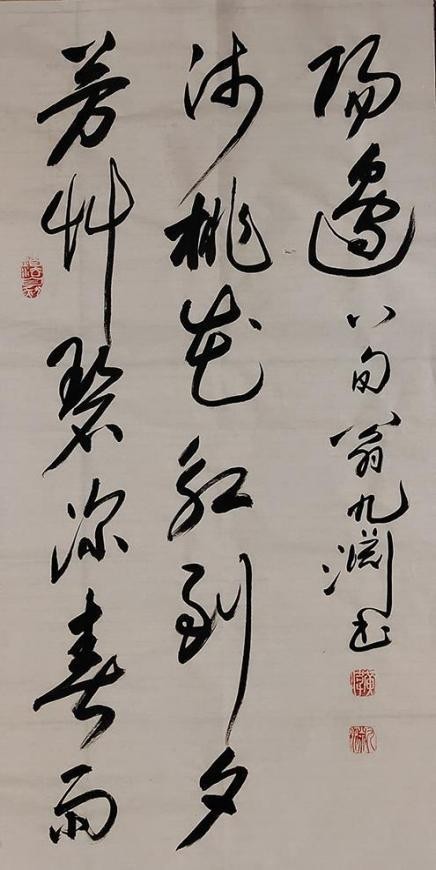 芳艸碧深春雨
沛桃花紅到夕
陽邊 八旬翁九淵书